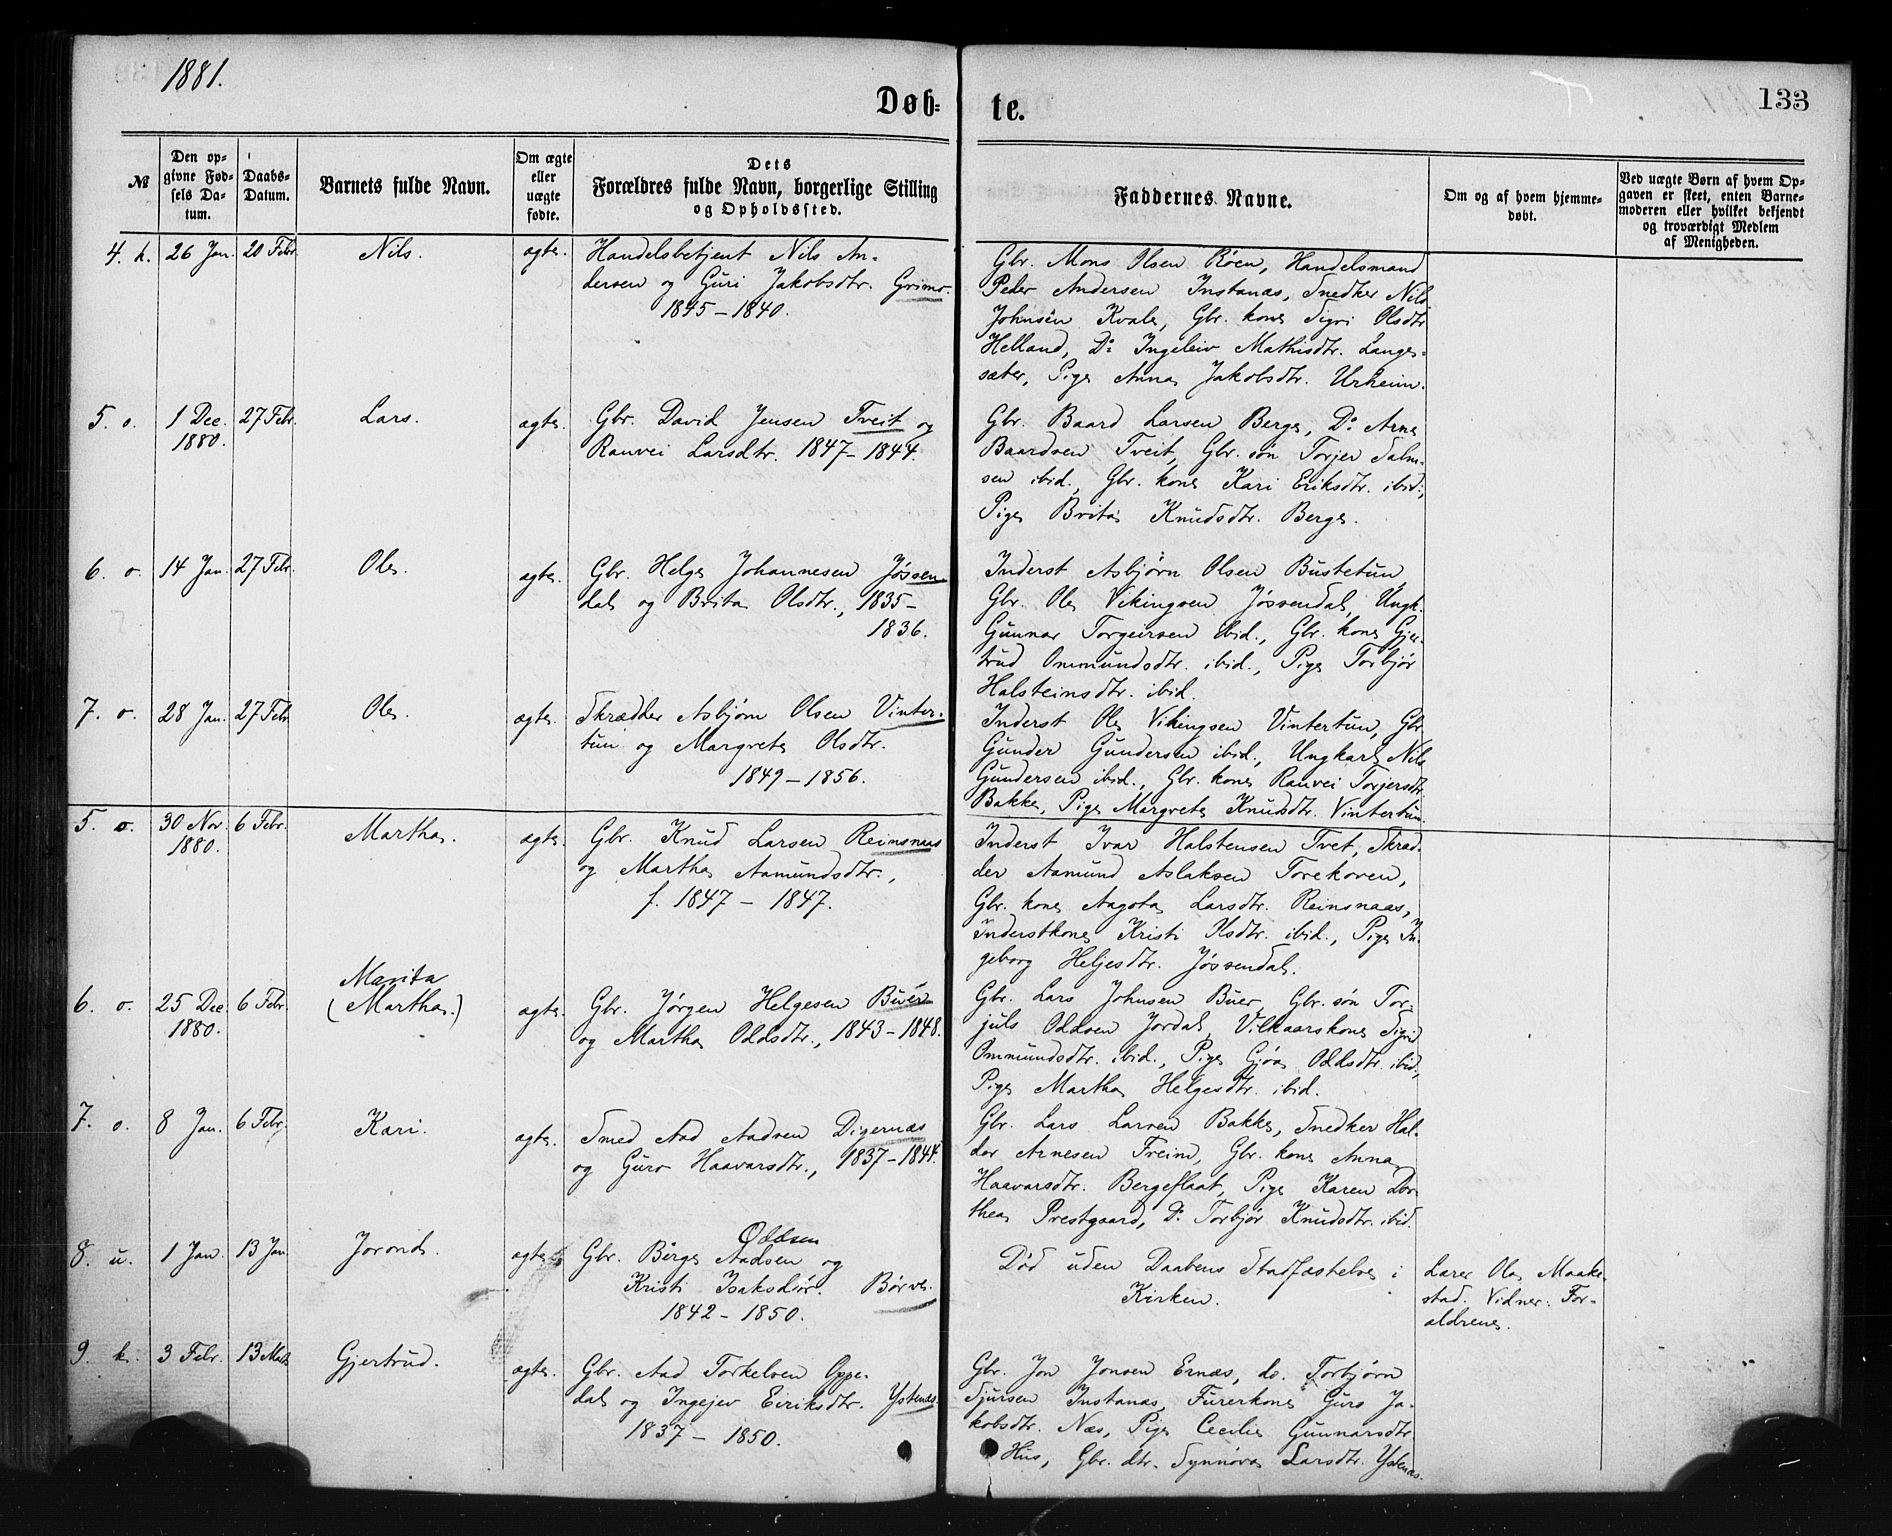 1881.
133
Døb=
te.
№
Den op=
givne Fød=
sels Da=
tum.
Daabs=
Datum.
Barnets fulde Navn.
Om ægte
eller
uægte
fødte.
Dets
Forældres fulde Navn, borgerlige Stilling
og Opholdssted.
Faddernes Navne.
Om og af hvem hjemme=
døbt.
Ved uægte Børn af hvem Op=
gaven er skeet, enten Barne=
moderen eller hvilket bekjendt
og troværdigt Medlem
af Menigheden.
4. k. 26 Jan. 20 Febr. Nils. ægte.
Handelsbetjent Nils An=
dersen og Guri Jakobsdtr. Grimo.
1845 – 1840.
Gbr. Mons Olsen Røen, Handelsmand
Peder Andersen Instanæs, Snedker Nils
Johnsen Kvale, Gbr. kone Sigri Olsdtr
Helland, Do Ingeleiv Mathisdtr. Lange=
sæter, Pige Anna Jakobsdtr. Urheim.
5. o. 1 Dec. 27 Febr. Lars. ægte.
1880.
Gbr. David Jensen Tveit og
Ranvei Larsdtr. 1847 – 1844.
Gbr. Baard Larsen Berge, Do Arne
Baardsen Tveit, Gbr. søn Torjer Salm=
sen ibid., Gbr. kone Kari Eriksdtr. ibid.,
Pige Brita Knudsdtr. Berge.
6. o. 14 Jan. 27 Febr. Ole. ægte.
Gbr. Helge Johannesen Jøssen=
dal og Brita Olsdtr., 1835 –
1836.
Inderst Asbjørn Olsen Bustetun,
Gbr. Ole Vikingsen Jøssendal, Ungk.
Gunnar Torgeirsen ibid., Gbr. kone Gjer=
trud Ommundsdtr. ibid., Pige Torbjør
Halsteinsdtr. ibid.
7. o. 28 Jan. 27 Febr. Ole. ægte.
Skrædder Asbjørn Olsen Vinter=
tun og Margrete Olsdtr.
1849 – 1856.
Inderst Ole Vikingsen Vintertun, Gbr
Gunder Gundersen ibid., Ungkarl Nils
Gundersen ibid., Gbr. kone Ranvei Torjersdtr.
Bakke, Pige Margrete Knudsdtr. Vintertun.
5. o. 30 Nov. 6 Febr. Martha. ægte.
1880.
Gbr. Knud Larsen Reinsnaas
og Martha Aamundsdtr.,
f. 1847 – 1847.
Inderst Ivar Halstensen Tvet, Skræd=
der Aamund Aslaksen Torekoven,
Gbr. kone Aagota Larsdtr. Reinsnaas,
Inderstkone Kristi Olsdtr. ibid., Pige In=
geborg Heljesdtr. Jøssendal.
Marita
6. o. 25 Dec. 6 Febr. (Martha.) ægte.
1880.
Gbr. Jørgen Helgesen Buer
og Martha Oddsdtr., 1843 – 1848.
Gbr. Lars Johnsen Buer, Gbr. søn Tor=
juls Oddsen Jordal, Vilkaarskone Sigrid
Ommundsdtr. ibid., Pige Gjøa Oddsdtr. ibid.,
Pige Martha Helgesdtr. ibid.
7. o. 8 Jan. 6 Febr. Kari. ægte.
Smed Aad Aadsen Digernæs
og Guro Haavarsdtr., 1837 – 1844.
Gbr. Lars Larsen Bakke, Snedker Hal=
dor Arnesen Freim, Gbr. kone Anna
Haavarsdtr. Bergeflaat, Pige Karen Dor=
thea Prestgaard, Do Torbjør Knudsdtr. ibid.
8. u. 1 Jan. 13 Jan. Jorond. ægte.
Oddsen
Gbr. Børge Aadsen og
Kristi Isaksdtr. Børve.
1842 – 1850.
Død uden Daabens Stadfæstelse i
Kirken.
Lærer Ola Maake=
stad. Vidner: For=
ældrene.
9. k. 3 Febr. 13 Marts Gjertrud. ægte.
Gbr. Aad Torkelsen Oppe=
dal og Ingejer Eiriksdtr. Ystenæs.
1837 – 1850.
Gbr. Jon Jonsen Ernæs, do. Torbjørn
Sjursen Instanæs, Furerkone Guro Ja=
kobsdtr. Næs, Pige Cecilie Gunnarsdtr
Hus, Gbr. dtr. Synnøva Larsdtr. Ystenæs.